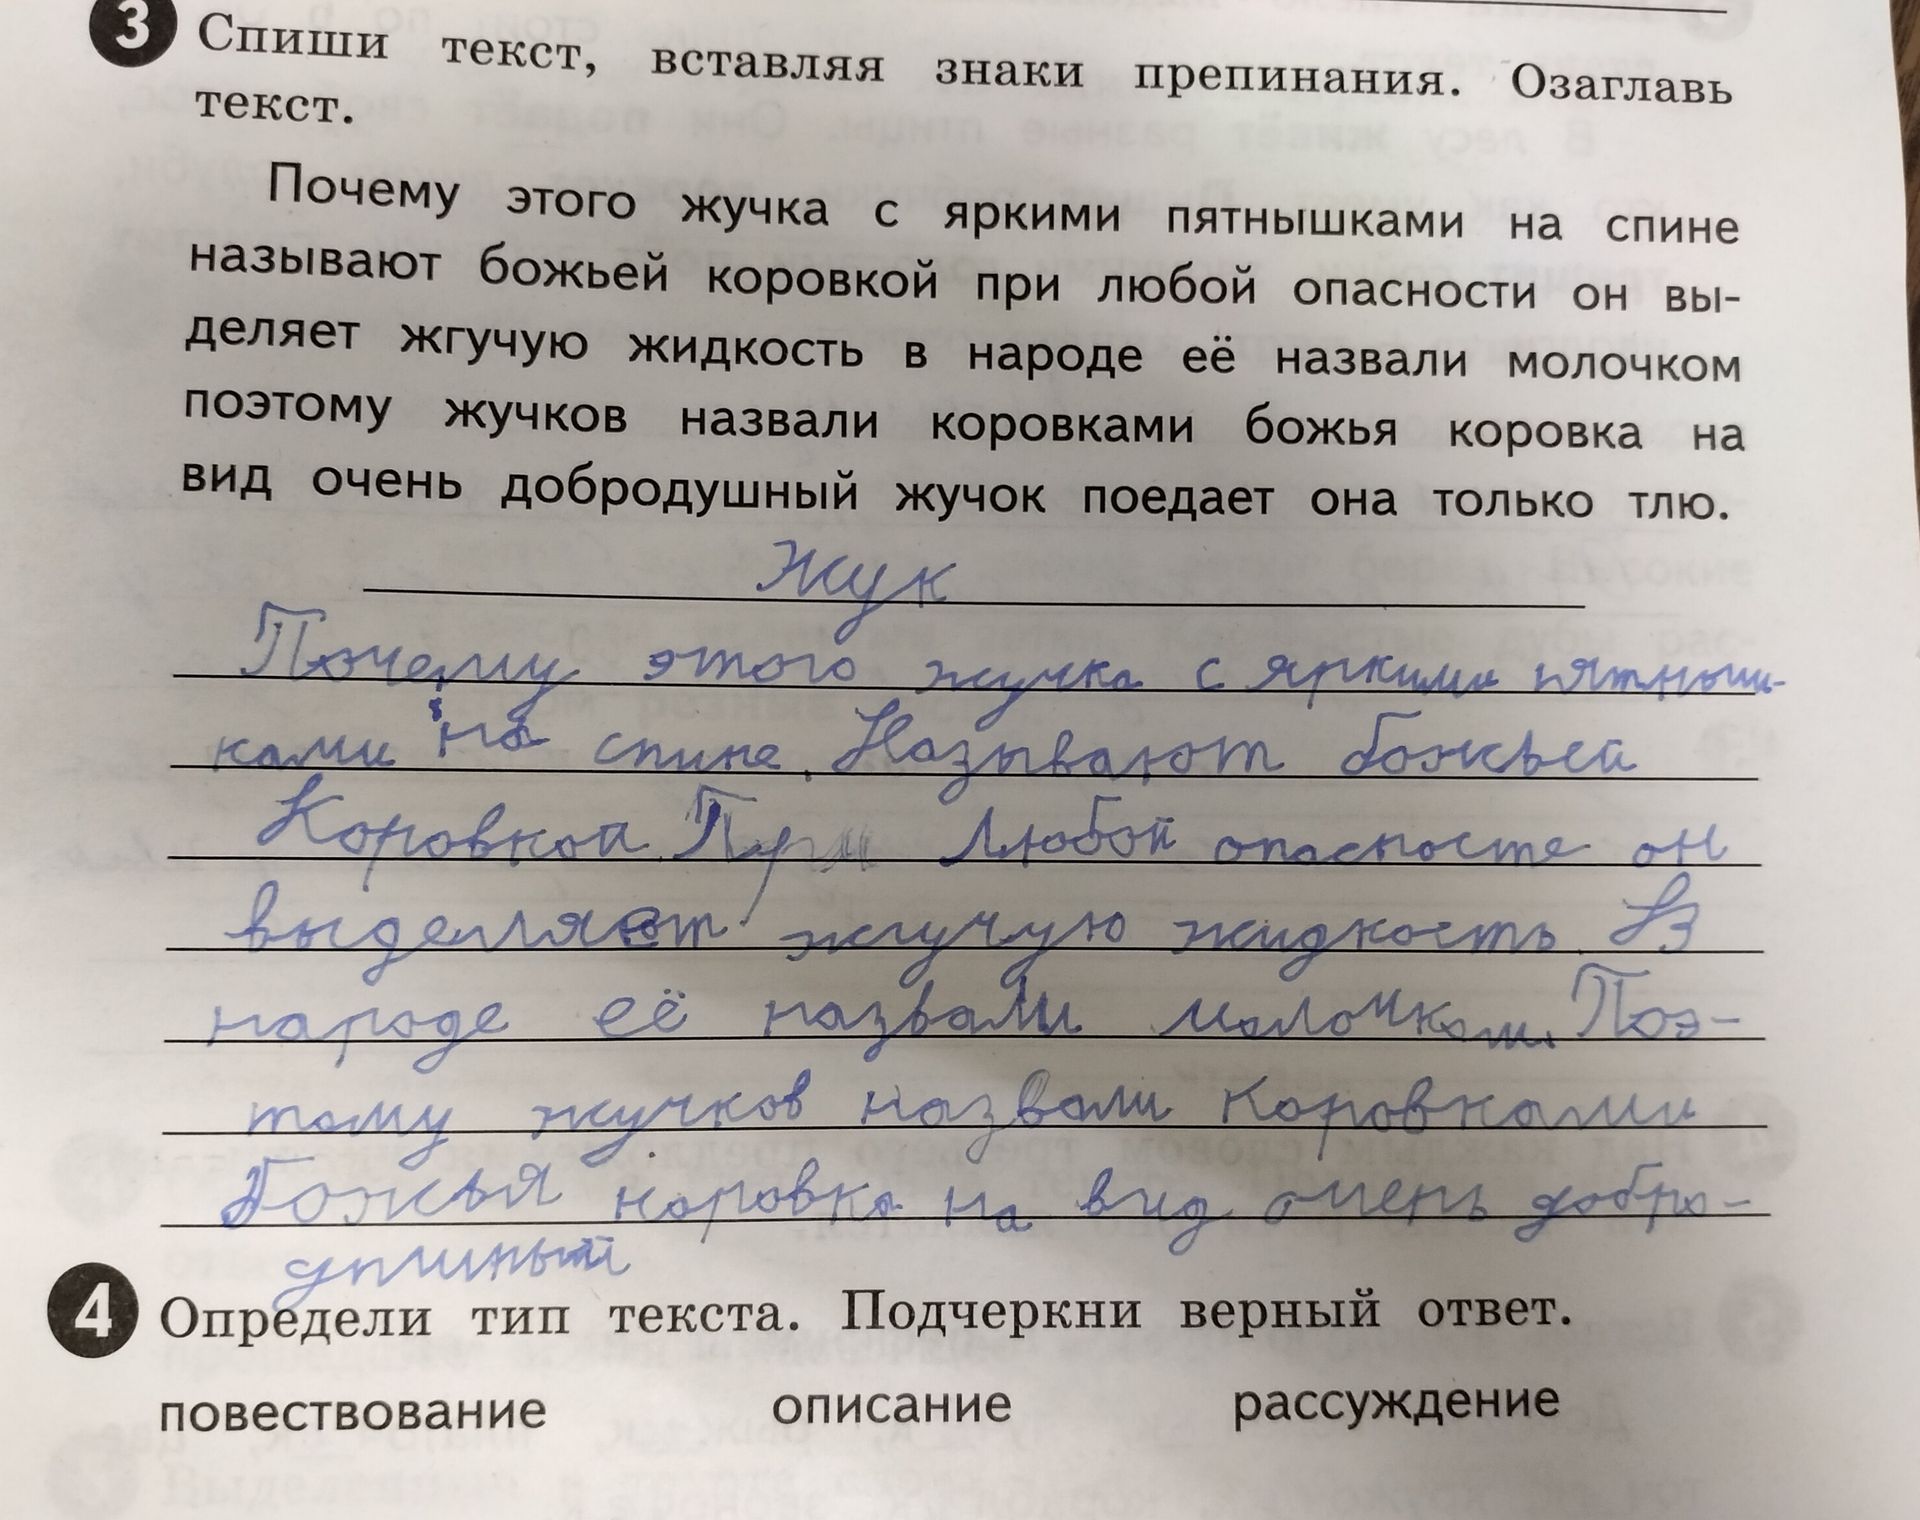 3 Спиши текст, вставляя знаки препинания. Озаглавь
текст.
Почему этого жучка с яркими пятнышками на спине
называют божьей коровкой при любой опасности он вы-
деляет жгучую жидкость в народе её назвали молочком
поэтому жучков назвали коровками божья коровка на
вид очень добродушный жучок поедает она только тлю.
Жук
Почему этого жучка с яркими пятныш-
ками на спине. Называют божьей
Коровкой. При любой опасносте он
выделяет жгучую жидкость. В
народе её назвали молочком. Поэ-
тому жучков назвали коровками
Божья коровка на вид очень добро-
душный
4 Определи тип текста. Подчеркни верный ответ.
повествование описание рассуждение